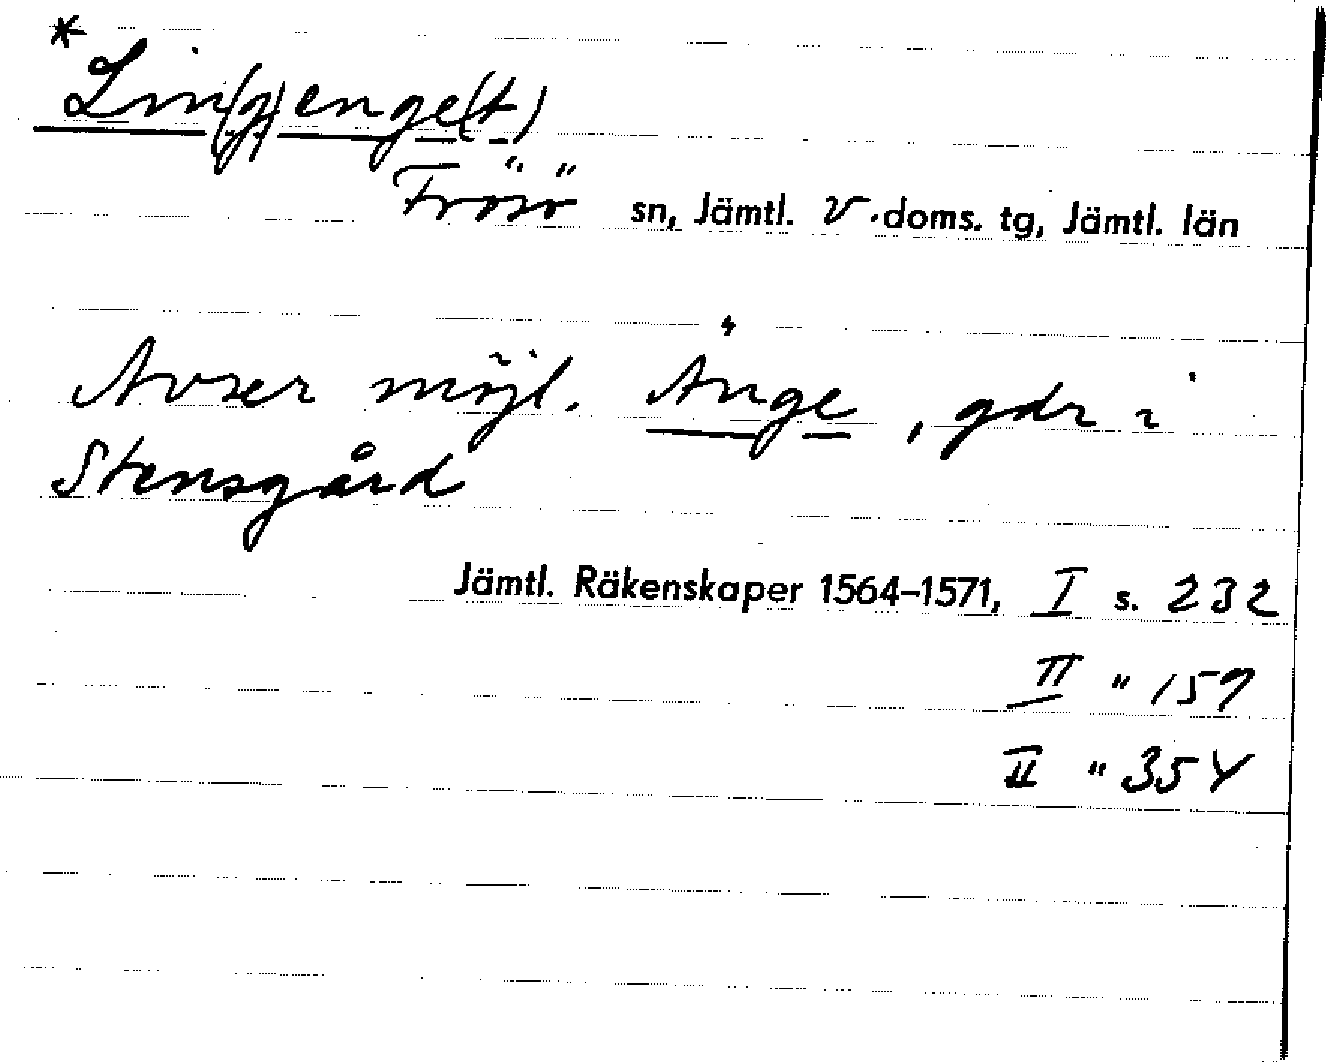 *Lin(g)enge(t)
Frösö sn, Jämtl. v. doms. tg, Jämtl. län
Avser möjl. Änge, gdr i
Stensgård
Jämtl. Räkenskaper 1564–1571, I s. 232
II " 159
II " 354